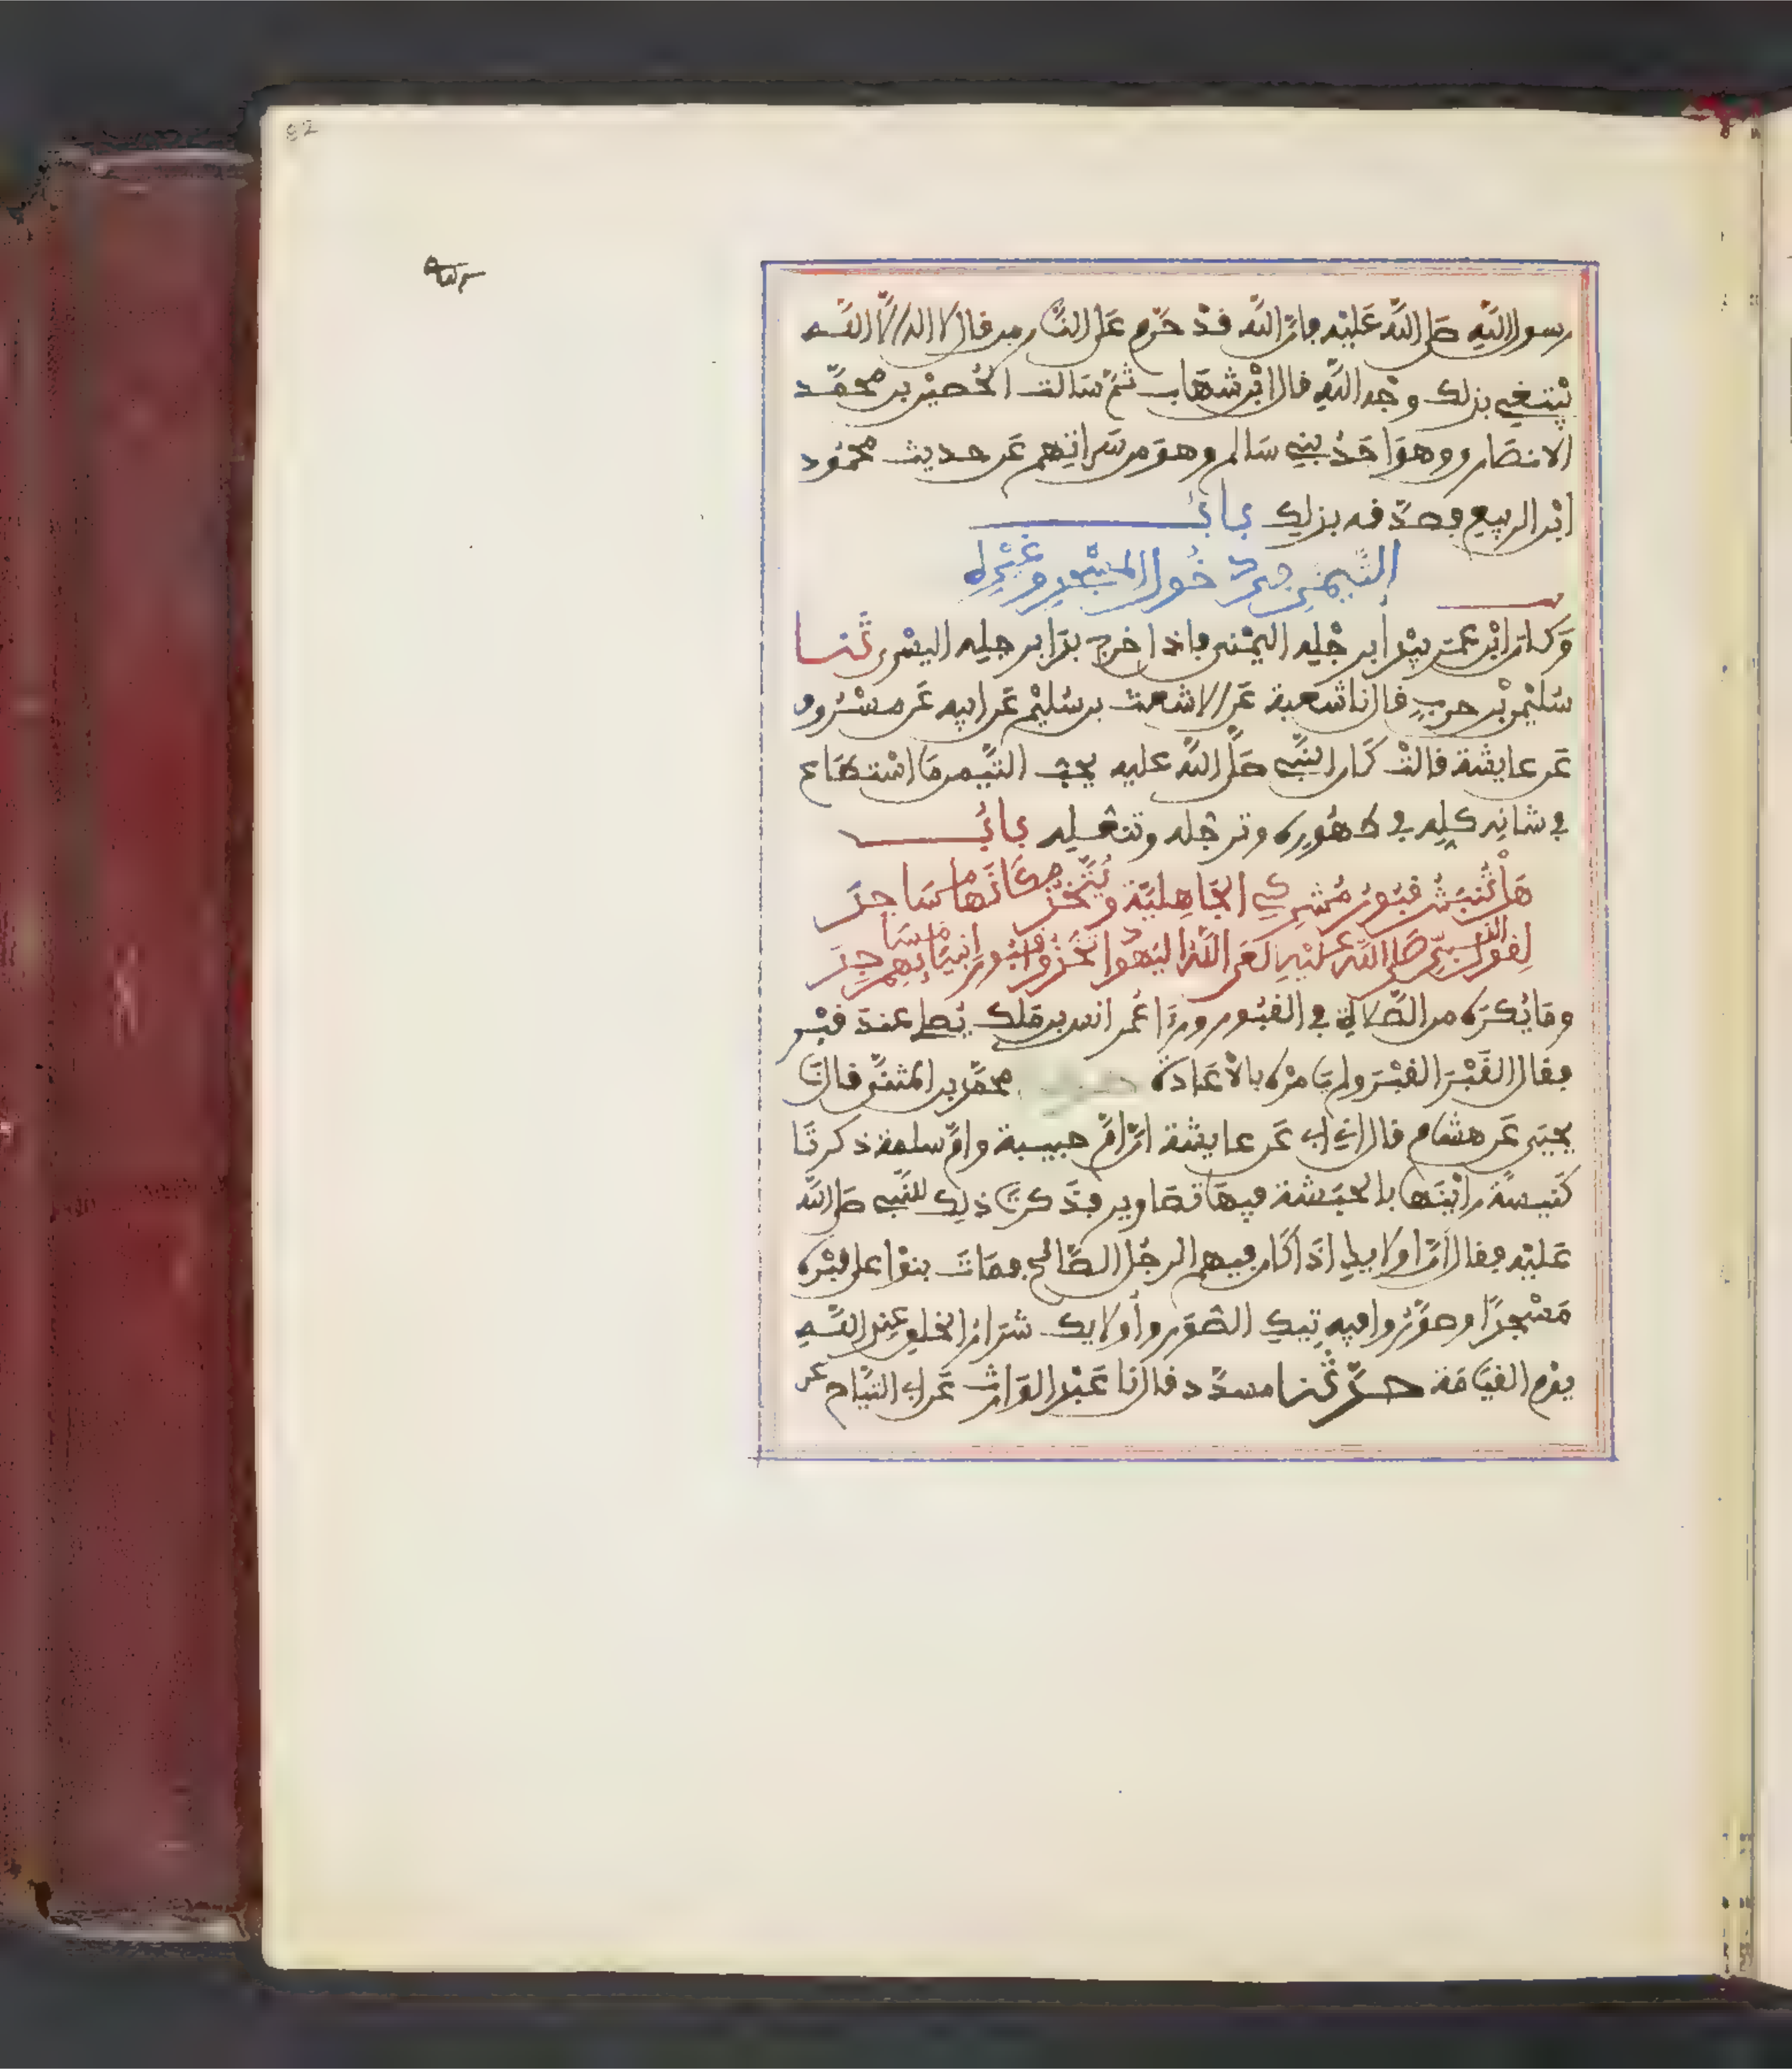 82
رسول الله صلى الله عليه فإن الله قد حرم على النار من قال لا اله الا الله
يبتغي بذلك وجه الله قال ابن شهاب ثم سالت الحصين بن محمد
الانصاري وهو احد بني سالم وهو من سراتهم عن حديث محمود
ابن الربيع فصدقه بذلك باب
التيمن في دخول المسجد وغيره
وكان ابن عمر يبدأ برجله اليمنى فإذا خرج بدا برجله اليسرى ثنا
سليمن بن حرب قال نا شعبة عن الاشعث بن سليم عن ابيه عن مسروق
عن عايشة قالت كان النبي صلى الله عليه يحب التيمن ما استطاع
في شانه كله في طهوره وترجله وتنعله باب
هل تنبش قبور مشركي الجاهلية ويتخذ مكانها مساجد
لقول النبي صلى الله عليه لعن الله اليهود اتخذوا قبور انبيايهم مساجد
وما يكره من الصلاة في القبور ورءا عمر انس بن ملك يصلي عند قبر
فقال القبر القبر ولم يامره بالاعادة محمد بن المثنى قال نا
يحيى عن هشام قال اني ابي عن عايشة ان ام حبيبة وام سلمة ذكرتا
كنيسة راينها بالحبشة فيها تصاوير فذكرتا ذلك للنبي صلى الله
عليه فقال ان اولايك اذا كان فيهم الرجل الصالح فمات بنوا على قبره
مسجدا وصوروا فيه تيك الصور وأولايك شرار الخلق عند الله
يوم القيامة حدثنا مسدد قال نا عبد الوارث عن ابي التياح عن